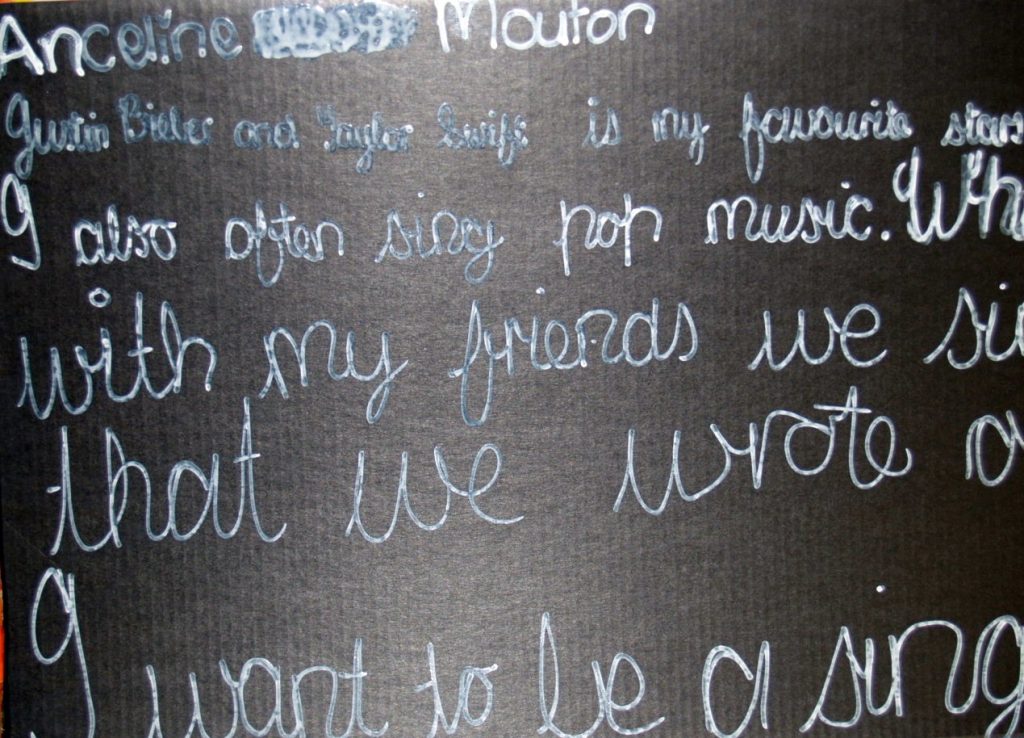 Anceline Mouton
Justin Bieber and Taylor Swift is my favourite stars
I also often sing pop music. Whe
with my friends we si
that we wrote o
I want to be a sing